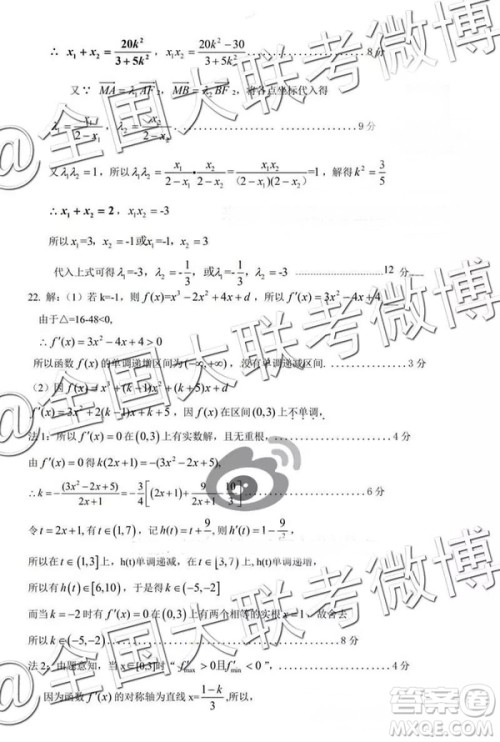 ∴ x₁+x₂=20k²/(3+5k²), x₁x₂=(20k²-30)/(3+5k²)..................8分
又∵ MA=λ₁AF₂, MB=λ₂BF₂, 将各点坐标代入得
λ₁=x₁/(2-x₁), λ₂=x₂/(2-x₂)..................9分
又λ₁λ₂=1, 所以λ₁λ₂=x₁/(2-x₁)·x₂/(2-x₂)=x₁x₂/((2-x₁)(2-x₂))=1, 解得k²=3/5
∴ x₁+x₂=2, x₁x₂=-3
所以x₁=3, x₂=-1或x₁=-1, x₂=3
代入上式可得λ₁=-3, λ₂=-1/3, 或λ₁=-1/3, λ₂=-3..................12分
22. 解:(1)若k=-1, 则f(x)=x³-2x²+4x+d, 所以f'(x)=3x²-4x+4
由于△=16-48<0,
∴f'(x)=3x²-4x+4>0
所以函数f(x)的单调递增区间为(-∞,+∞), 没有单调减区间..................3分
(2)因f(x)=x³+(k-1)x²+(k+5)x+d
f'(x)=3x²+2(k-1)x+k+5, 因f(x)在区间(0,3)上不单调,
法1: 所以f'(x)=0在(0,3)上有实数解, 且无重根,..................4分
由f'(x)=0得k(2x+1)=-(3x²-2x+5),
∴k=-(3x²-2x+5)/(2x+1)=-3/4[(2x+1)+9/(2x+1)-10/3]..................6分
令t=2x+1, 有t∈(1,7), 记h(t)=t+9/t, 则h'(t)=1-9/t²,
所以在t∈(1,3]上, h(t)单调递减, 在t∈[3,7)上, h(t)单调递增,
所以有h(t)∈[6,10), 于是得k∈(-5,-2]
而当k=-2时有f'(x)=0在(0,3)上有两个相等的实根x=1, 故舍去
所以k∈(-5,-2)..................8分
法2: 由题意知, 当x∈[0,3]时“f'max>0且f'min<0”,..................4分
因为函数f'(x)的对称轴为直线x=(1-k)/3, 所以,
@全国大联考微博
@全国大联考微博
@全国大联考微博